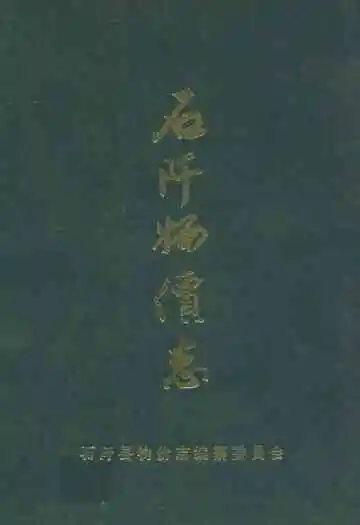 石阡物價志
石阡县物价志编纂委员会